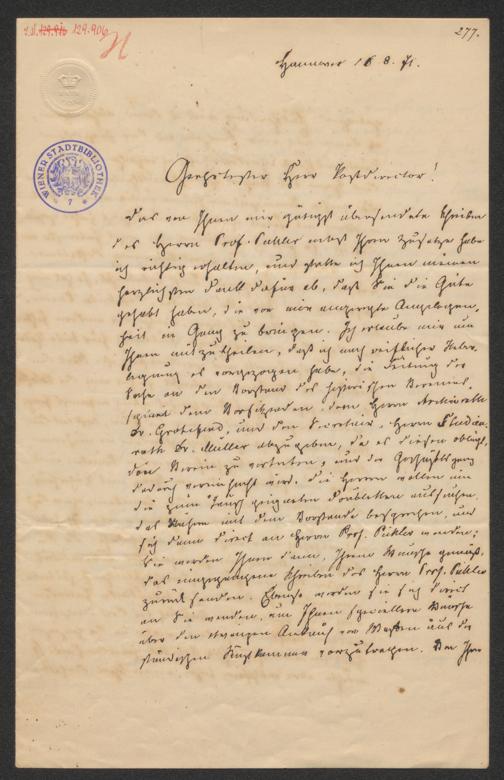 I.N. 129.916 129.906
277.
Hannover 16 8. 71.
WIENER STADTBIBLIOTHEK
Geehrtester Herr Postdirector!
Das von Ihnen mir gütigst übersendete Schreiben
des Herrn Prof. Pichler nebst Ihrem Zusatze habe
ich richtig erhalten, und statte ich Ihnen meinen
herzlichsten Dank dafür ab, daß Sie die Güte
gehabt haben, die von mir angeregte Angelegen-
heit in Gang zu bringen. Ich erlaube mir nun
Ihnen mitzutheilen, daß ich nach reiflicher Ueber-
legung es vorgezogen habe, die Leitung der
Sache an den Vorstand des historischen Vereins,
speciell dem Vorsitzenden, dem Herrn Archivrath
Dr. Grotefend, und dem Secretair, Herrn Studien-
rath Dr. Müller abzugeben, da es diesen obliegt,
den Verein zu vertreten, und der Geschäftsgang
dadurch vereinfacht wird. Die Herren wollen nun
die zum Tausch geeigneten Doubletten aufsuchen,
das Nähere mit dem Vorstande besprechen, und
sich dann direct an Herrn Prof. Pichler wenden;
Sie werden Ihnen dann, Ihrem Wunsche gemäß,
das eingegangene Schreiben des Herrn Prof. Pichler
zurück senden. Ebenso werden sie sich direct
an Sie wenden, um Ihnen speciellere Wünsche
über den etwaigen Ankauf von Waffen aus der
ständischen Rüstkammer vorzutragen. Von Ihrer